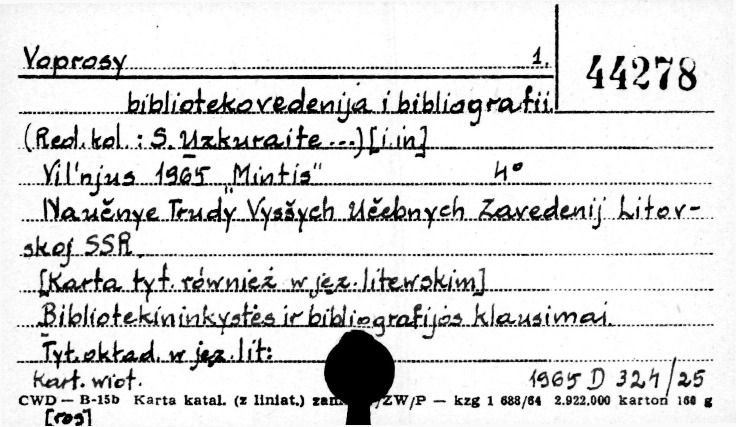 Voprosy 1.
44278
bibliotekovedenija i bibliografii.
(Red. kol. : S. Uzkuraite ...) [i.in]
Vil'njus 1965 „Mintis" 4°
"Naučnye Trudy Vysšych Učebnych Zavedenij Litov-
skoj SSR.
[Karta tyt. również w jęz. litewskim]
Bibliotekininkystės ir bibliografijos klausimai.
Tyt. okład. w jęz. lit:
kart. wiot. 1965 D 324/25
CWD — B-15b Karta katal. (z liniat.) /ZW/P — kzg 1 688/64 2.922.000 karton 160 g
[ros]